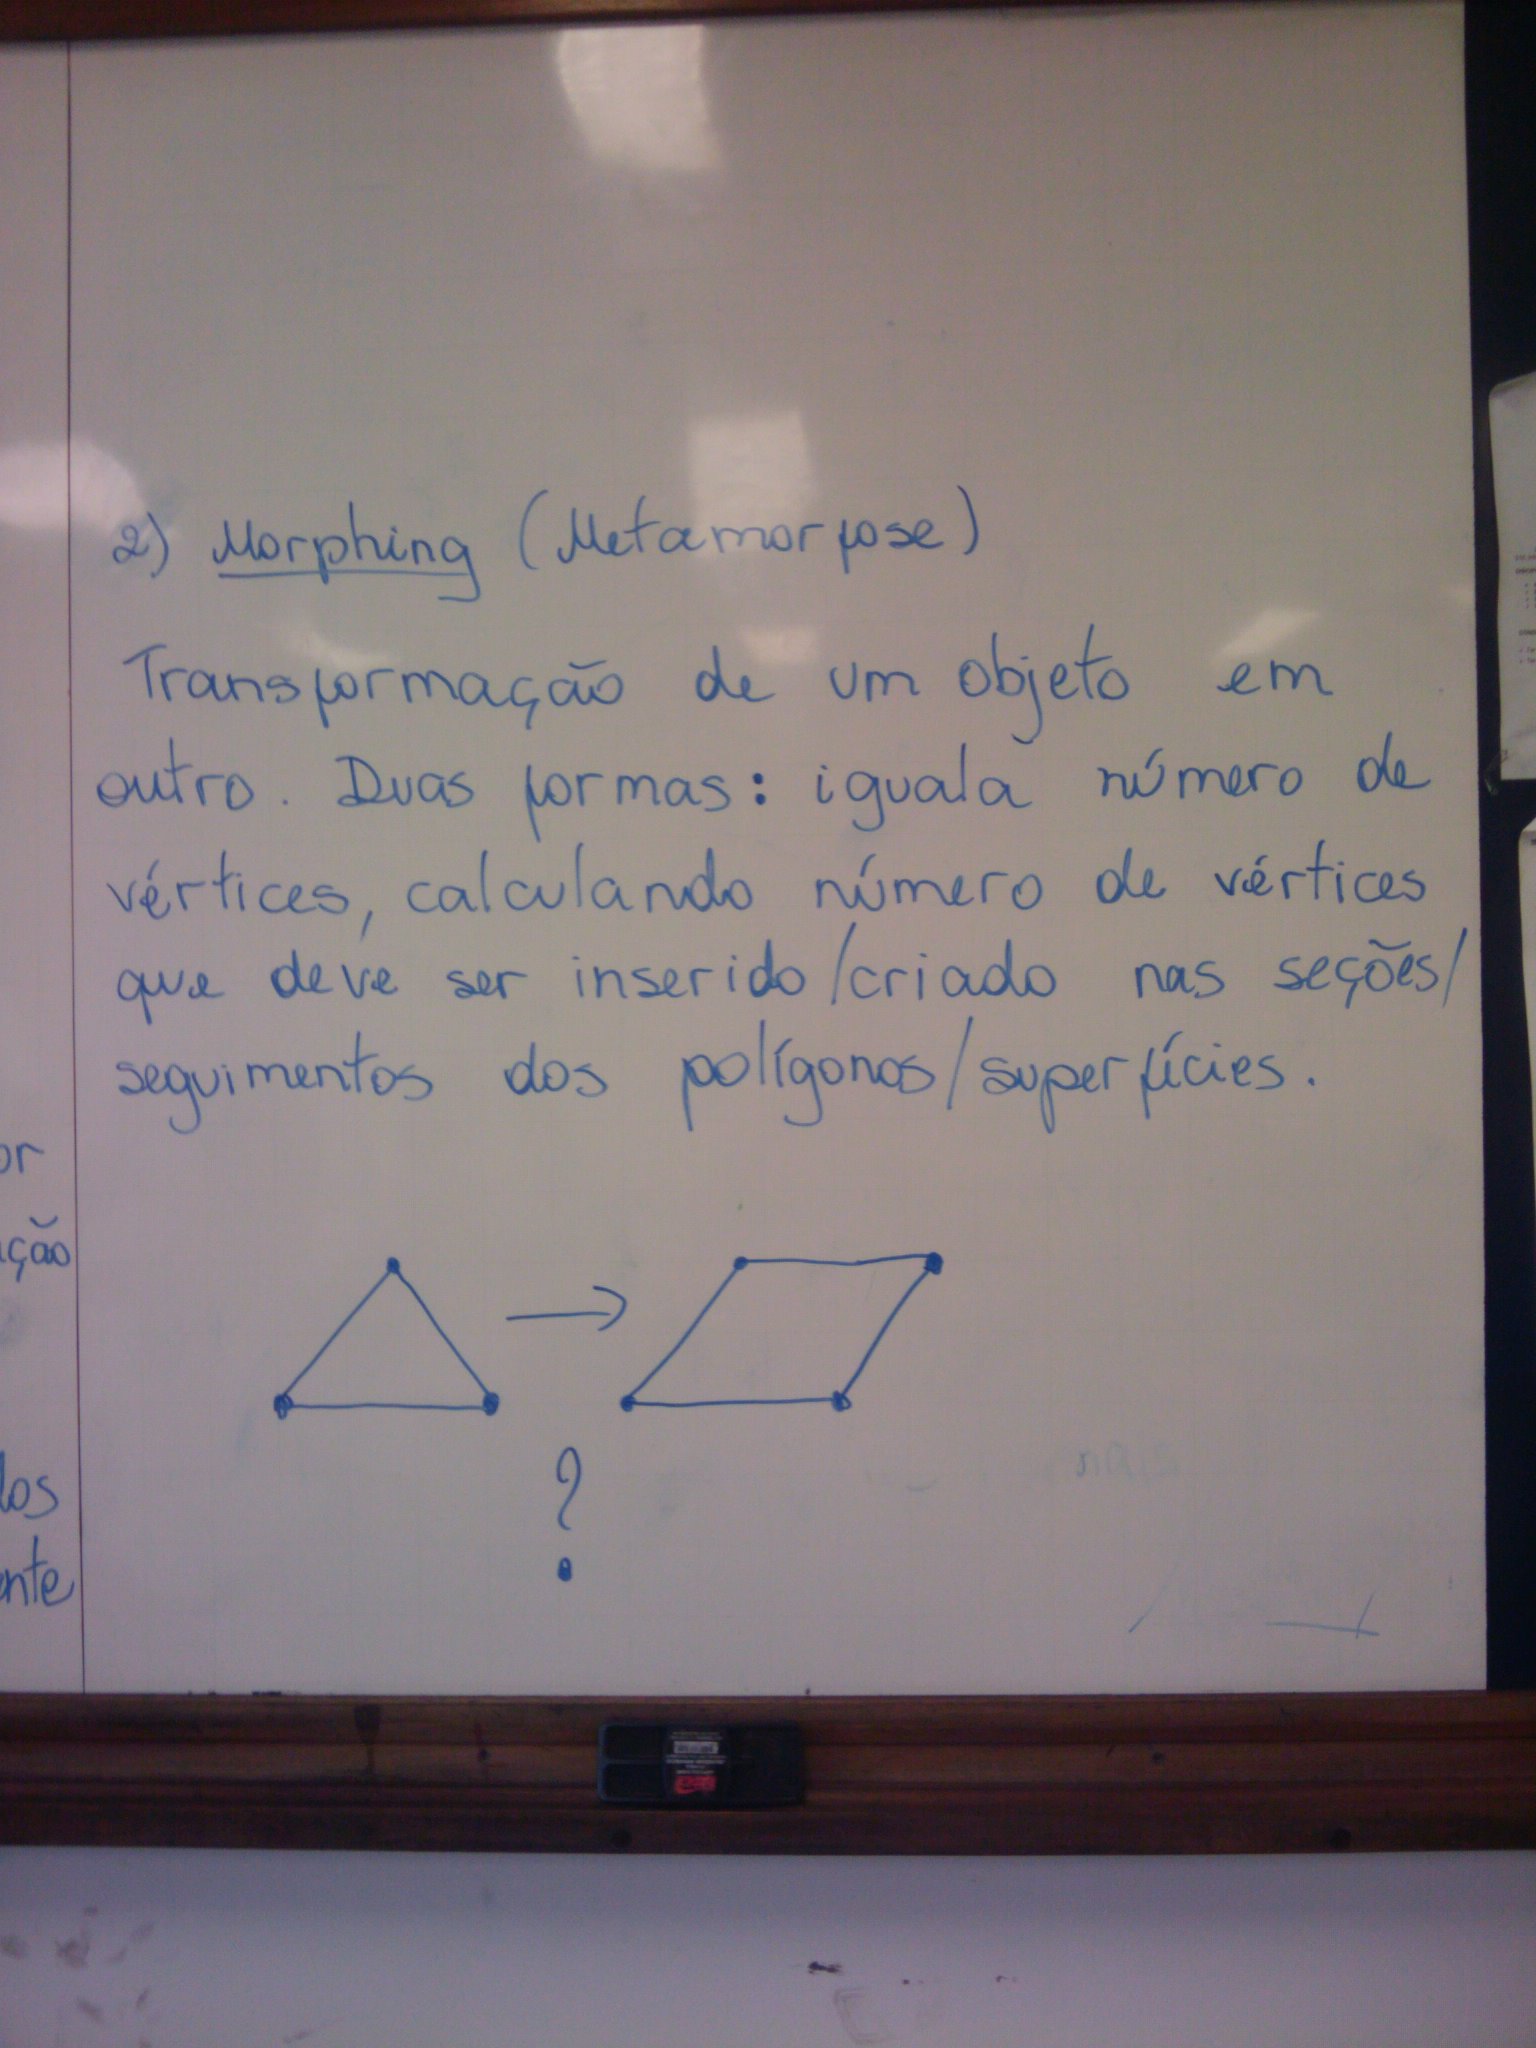 2) Morphing (Metamorfose)
Transformação de um objeto em
outro. Duas formas: iguala número de
vértices, calculando número de vértices
que deve ser inserido/criado nas seções/
seguimentos dos polígonos/superfícies.
?
or
ção
los
ente